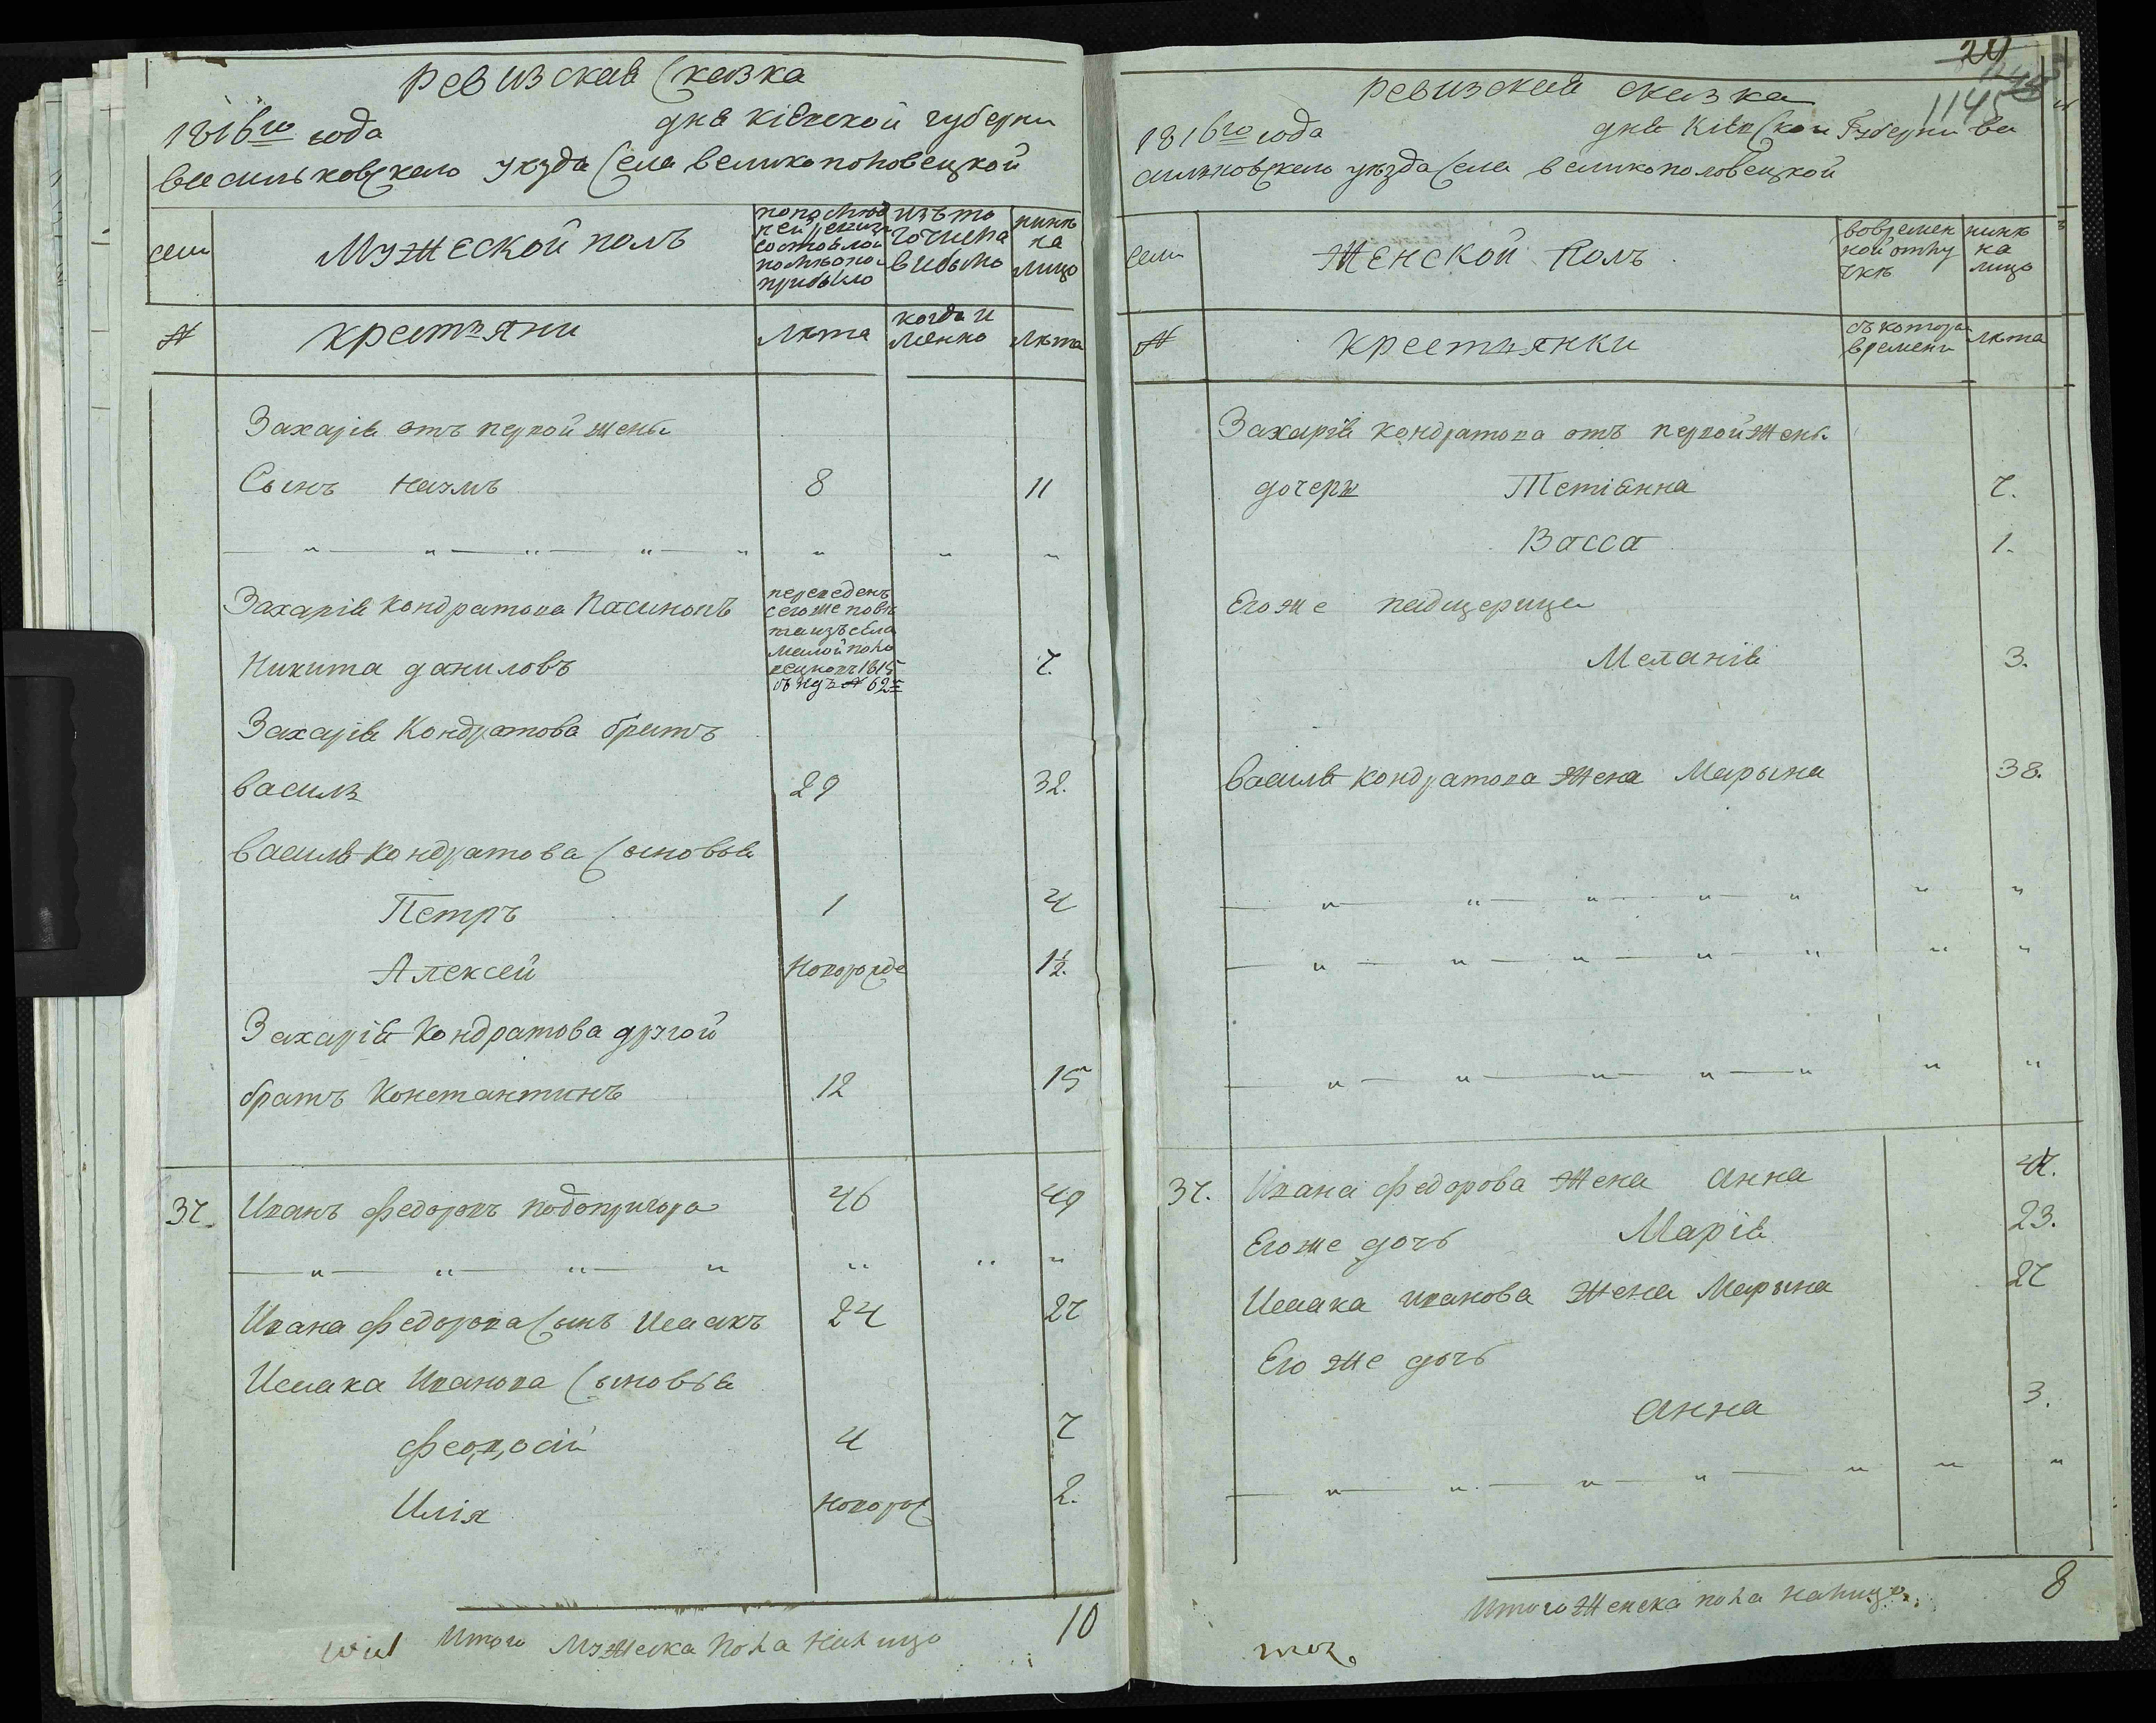 Ревизская Сказка
1816го года дня Кіевской губерни
васильковского уѣзда Села великополовецкой
семи
Мужеской полъ
по последней ревизи состояло и послѣ оной прибыло
изъ того числа выбыло
нынѣ на лицо
№
крестъяни
Лѣта
когда именно
Лѣта
Захарія отъ первой жены
Сынъ Наумъ 8 11
Захарія Кондратова Пасинокъ
переведенъ сего же повѣта изъ села Малой половецкой 1815
№ 62
Никита даниловъ 7.
Захарія Кондратова братъ
василь 29 32.
василя Кондратова Сыновья
Петръ 1 4
Алексей Новорожде 1½.
Захарія Кондратова другой
братъ Константинъ 12 15
37. Иванъ Федоровъ подопригора 46 49
Ивана Федорова Сынъ Исаакъ 24 27
Исаака Иванова Сыновья
Феодосій 4 7
Илія Новорож 2.
Итого Мужеска пола на лицо 10
24
1145
Ревизская сказка
1816го года дня Кіевской Губерни ва
сильковского уѣзда Села великополовецкой
семи
Женской Полъ
во временной отлучкѣ
нынѣ на лицо
№
Крестъянки
съ котора времени
Лѣта
Захарія Кондратова отъ первой Жены
дочери Тетіанна 7.
Васса 1.
Его же падщерица
Меланія 3.
Василя Кондратова Жена Марына 38.
37. Ивана Федорова Жена Анна 47.
Его же дочь Марія 23.
Исаака Иванова Жена Марына 27
Его же дочь
Анна 3.
Итого Женска пола на лицо 8